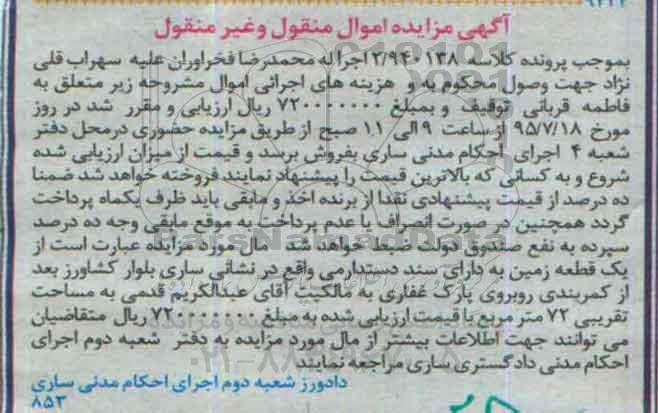 ۹۲۲۲
آگهی مزایده اموال منقول و غیر منقول
بموجب پرونده کلاسه ۲/۹۴۰۱۳۸ اجرا له محمدرضا فخراوران علیه سهراب قلی
نژاد جهت وصول محکوم به و هزینه های اجرائی اموال مشروحه زیر متعلق به
فاطمه قربانی توقیف و بمبلغ ۷۲۰۰۰۰۰۰۰ ریال ارزیابی و مقرر شد در روز
مورخ ۹۵/۷/۱۸ از ساعت ۹ الی ۱۱ صبح از طریق مزایده حضوری درمحل دفتر
شعبه ۴ اجرای احکام مدنی ساری بفروش برسد و قیمت از میزان ارزیابی شده
شروع و به کسانی که بالاترین قیمت را پیشنهاد نمایند فروخته خواهد شد ضمنا
ده درصد از قیمت پیشنهادی نقدا از برنده اخذ و مابقی باید ظرف یکماه پرداخت
گردد همچنین در صورت انصراف یا عدم پرداخت به موقع مابقی وجه ده درصد
سپرده به نفع صندوق دولت ضبط خواهد شد مال مورد مزایده عبارت است از
یک قطعه زمین به دارای سند دستدارمی واقع در نشانی ساری بلوار کشاورز بعد
از کمربندی روبروی پارک غفاری به مالکیت آقای عبدالکریم قدمی به مساحت
تقریبی ۷۲ متر مربع با قیمت ارزیابی شده به مبلغ ۷۲۰۰۰۰۰۰۰ ریال متقاضیان
می توانند جهت اطلاعات بیشتر از مال مورد مزایده به دفتر شعبه دوم اجرای
احکام مدنی دادگستری ساری مراجعه نمایند
دادورز شعبه دوم اجرای احکام مدنی ساری
۸۵۳